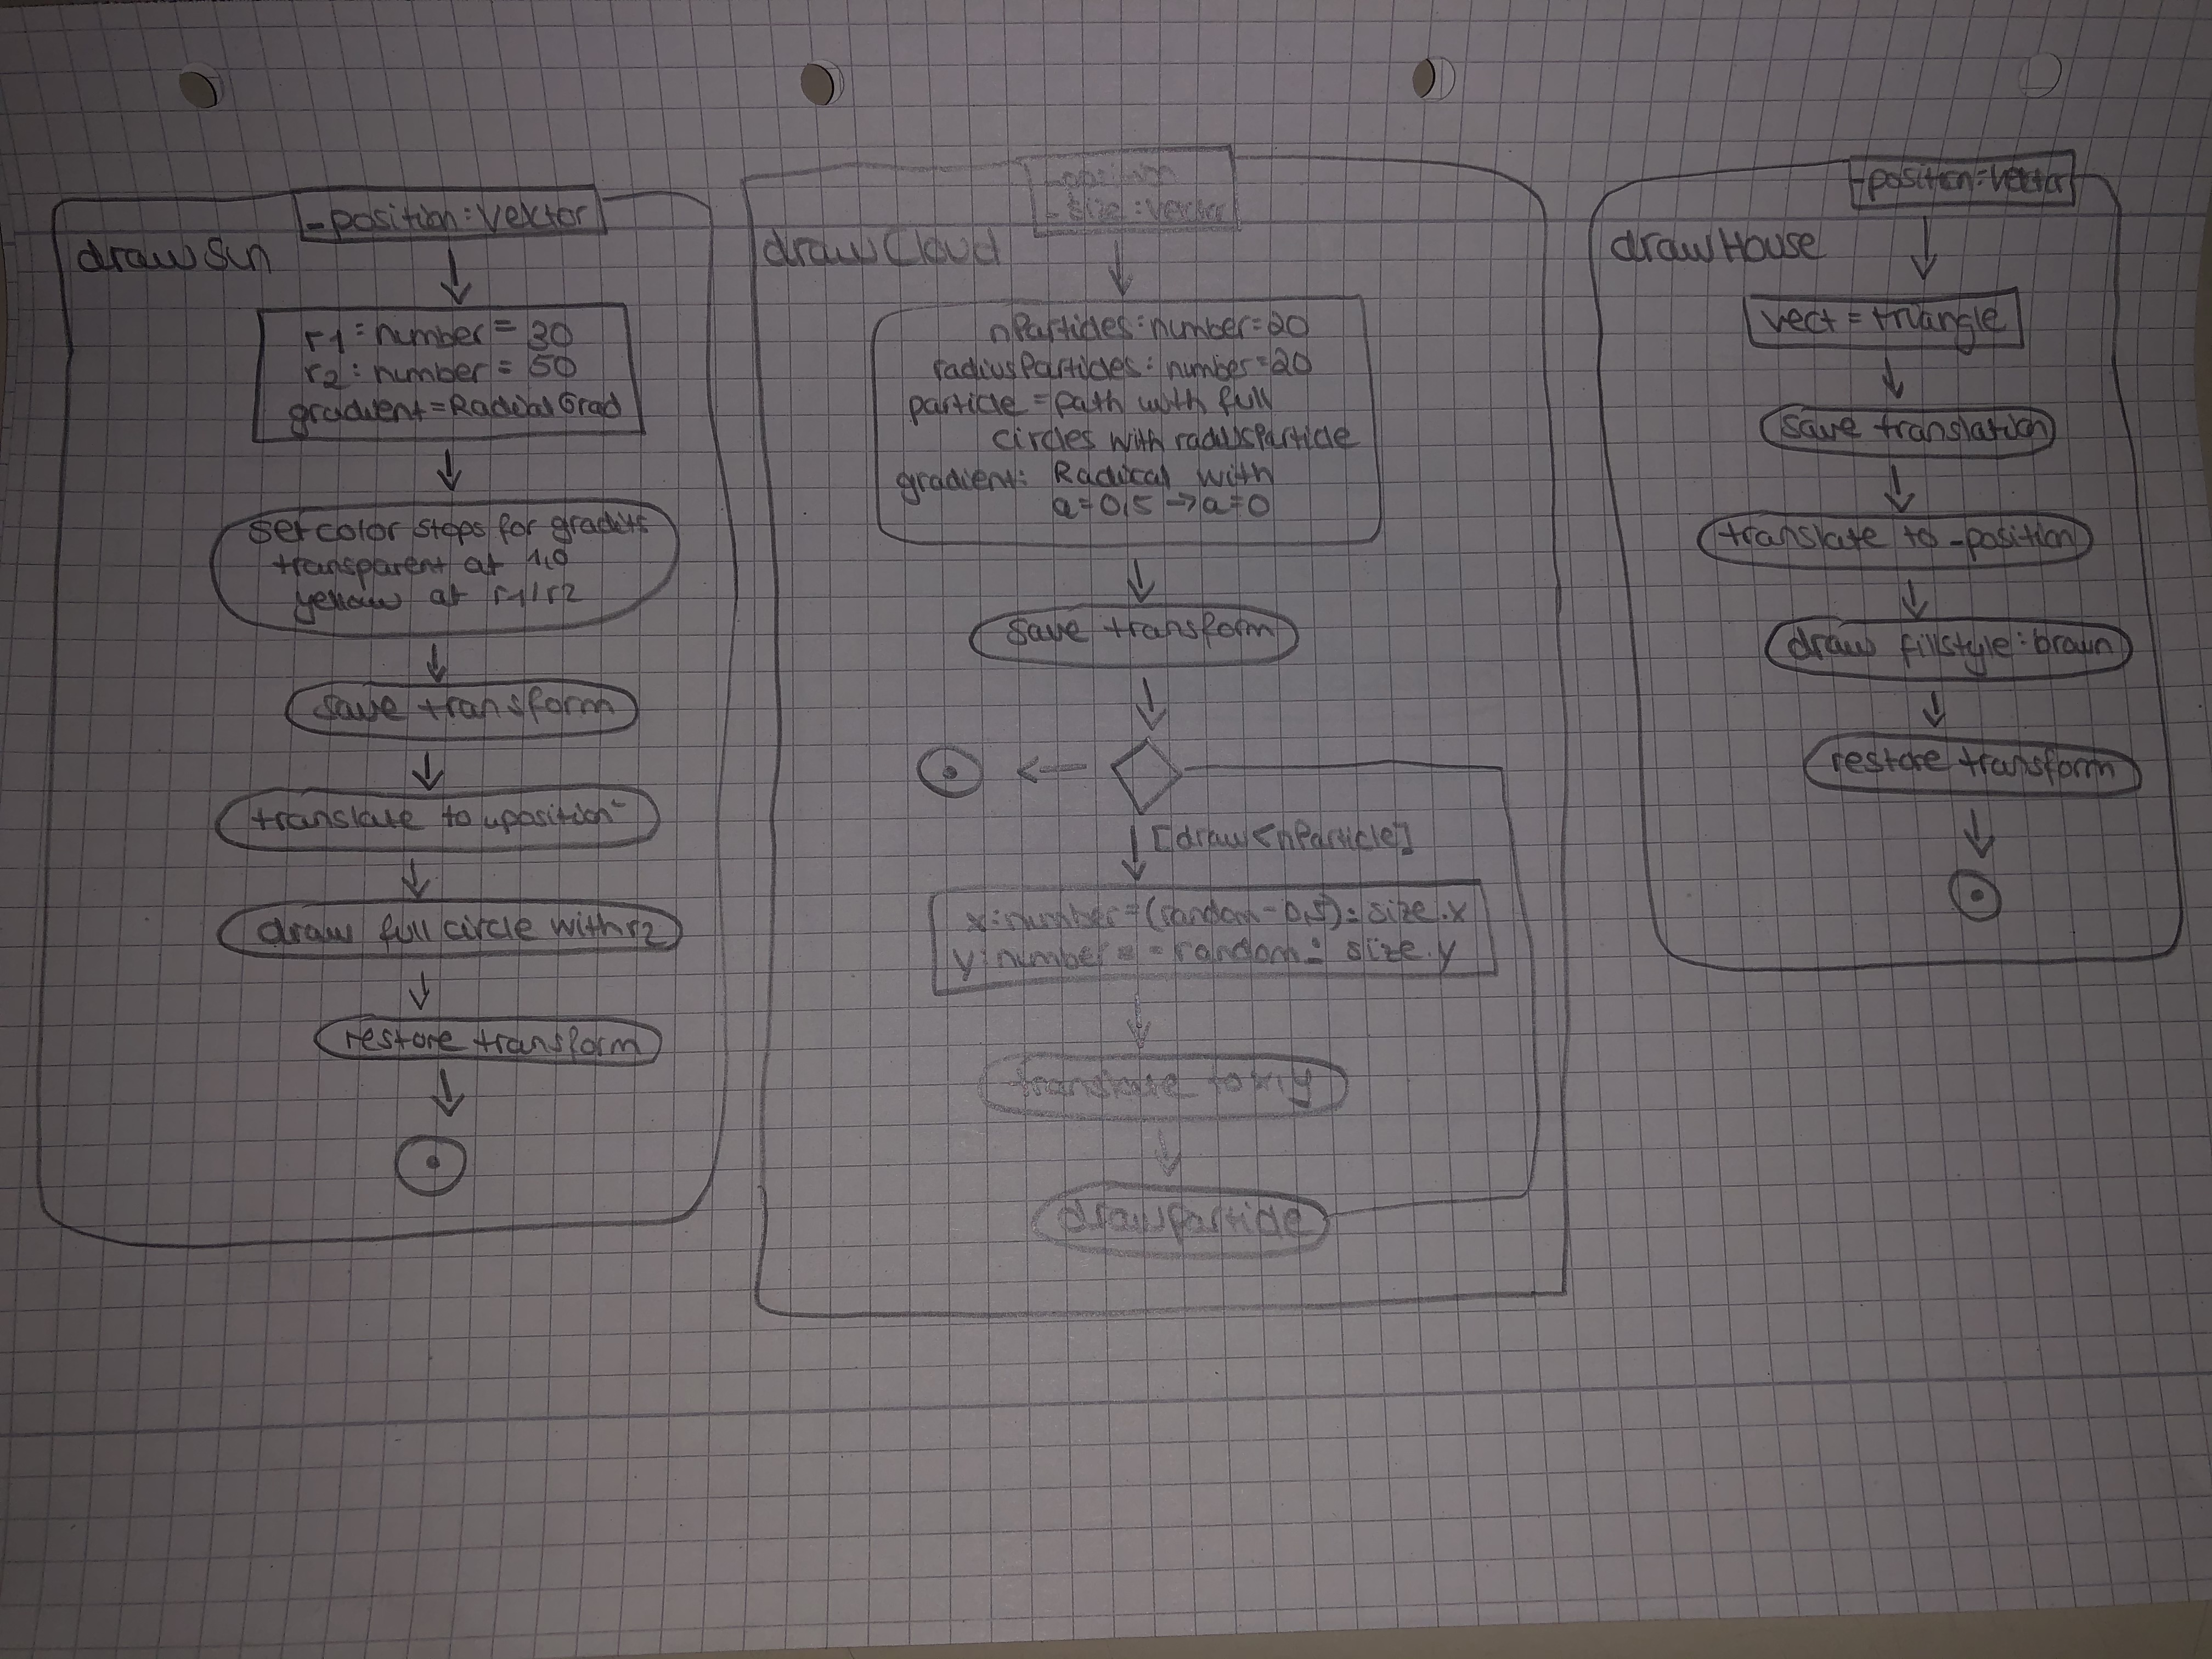 drawSun
-position: Vektor
r1: number = 30
r2: number = 50
gradient = RadialGrad
Set color stops for gradient
transparent at 1,0
yellow at r1/r2
save transform
translate to "position"
draw full circle with r2
restore transform
drawCloud
-position
-size: Vector
nParticles: number = 20
radiusParticles: number = 20
particle = path with full
circles with radiusParticle
gradient: Radical with
a = 0,5 -> a = 0
Save transform
[draw < nParticle]
x: number = (random - 0,5) : size.x
y: number = - random : size.y
translate to x,y
draw particle
drawHouse
-position: Vector
vect = triangle
Save translation
translate to -position
draw fillstyle: brown
restore transform